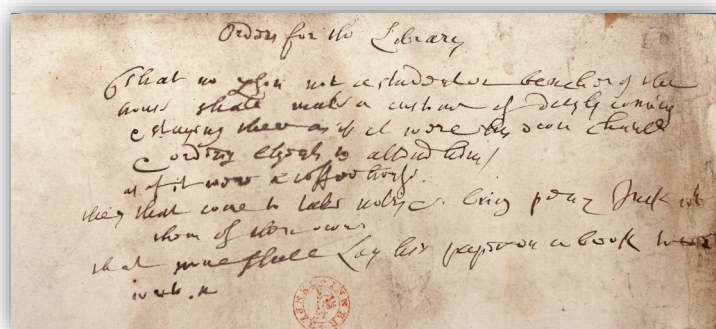 Orders for the Library
6 that no pson not a student or bencher of the
hous shall make a custome of dayly coming
& staying there as if it were his own chamber
&
as if it were a coffee house.
they that come to take notes bring pen & Inck wth
them of their own
that none shall Lay his paper on a book